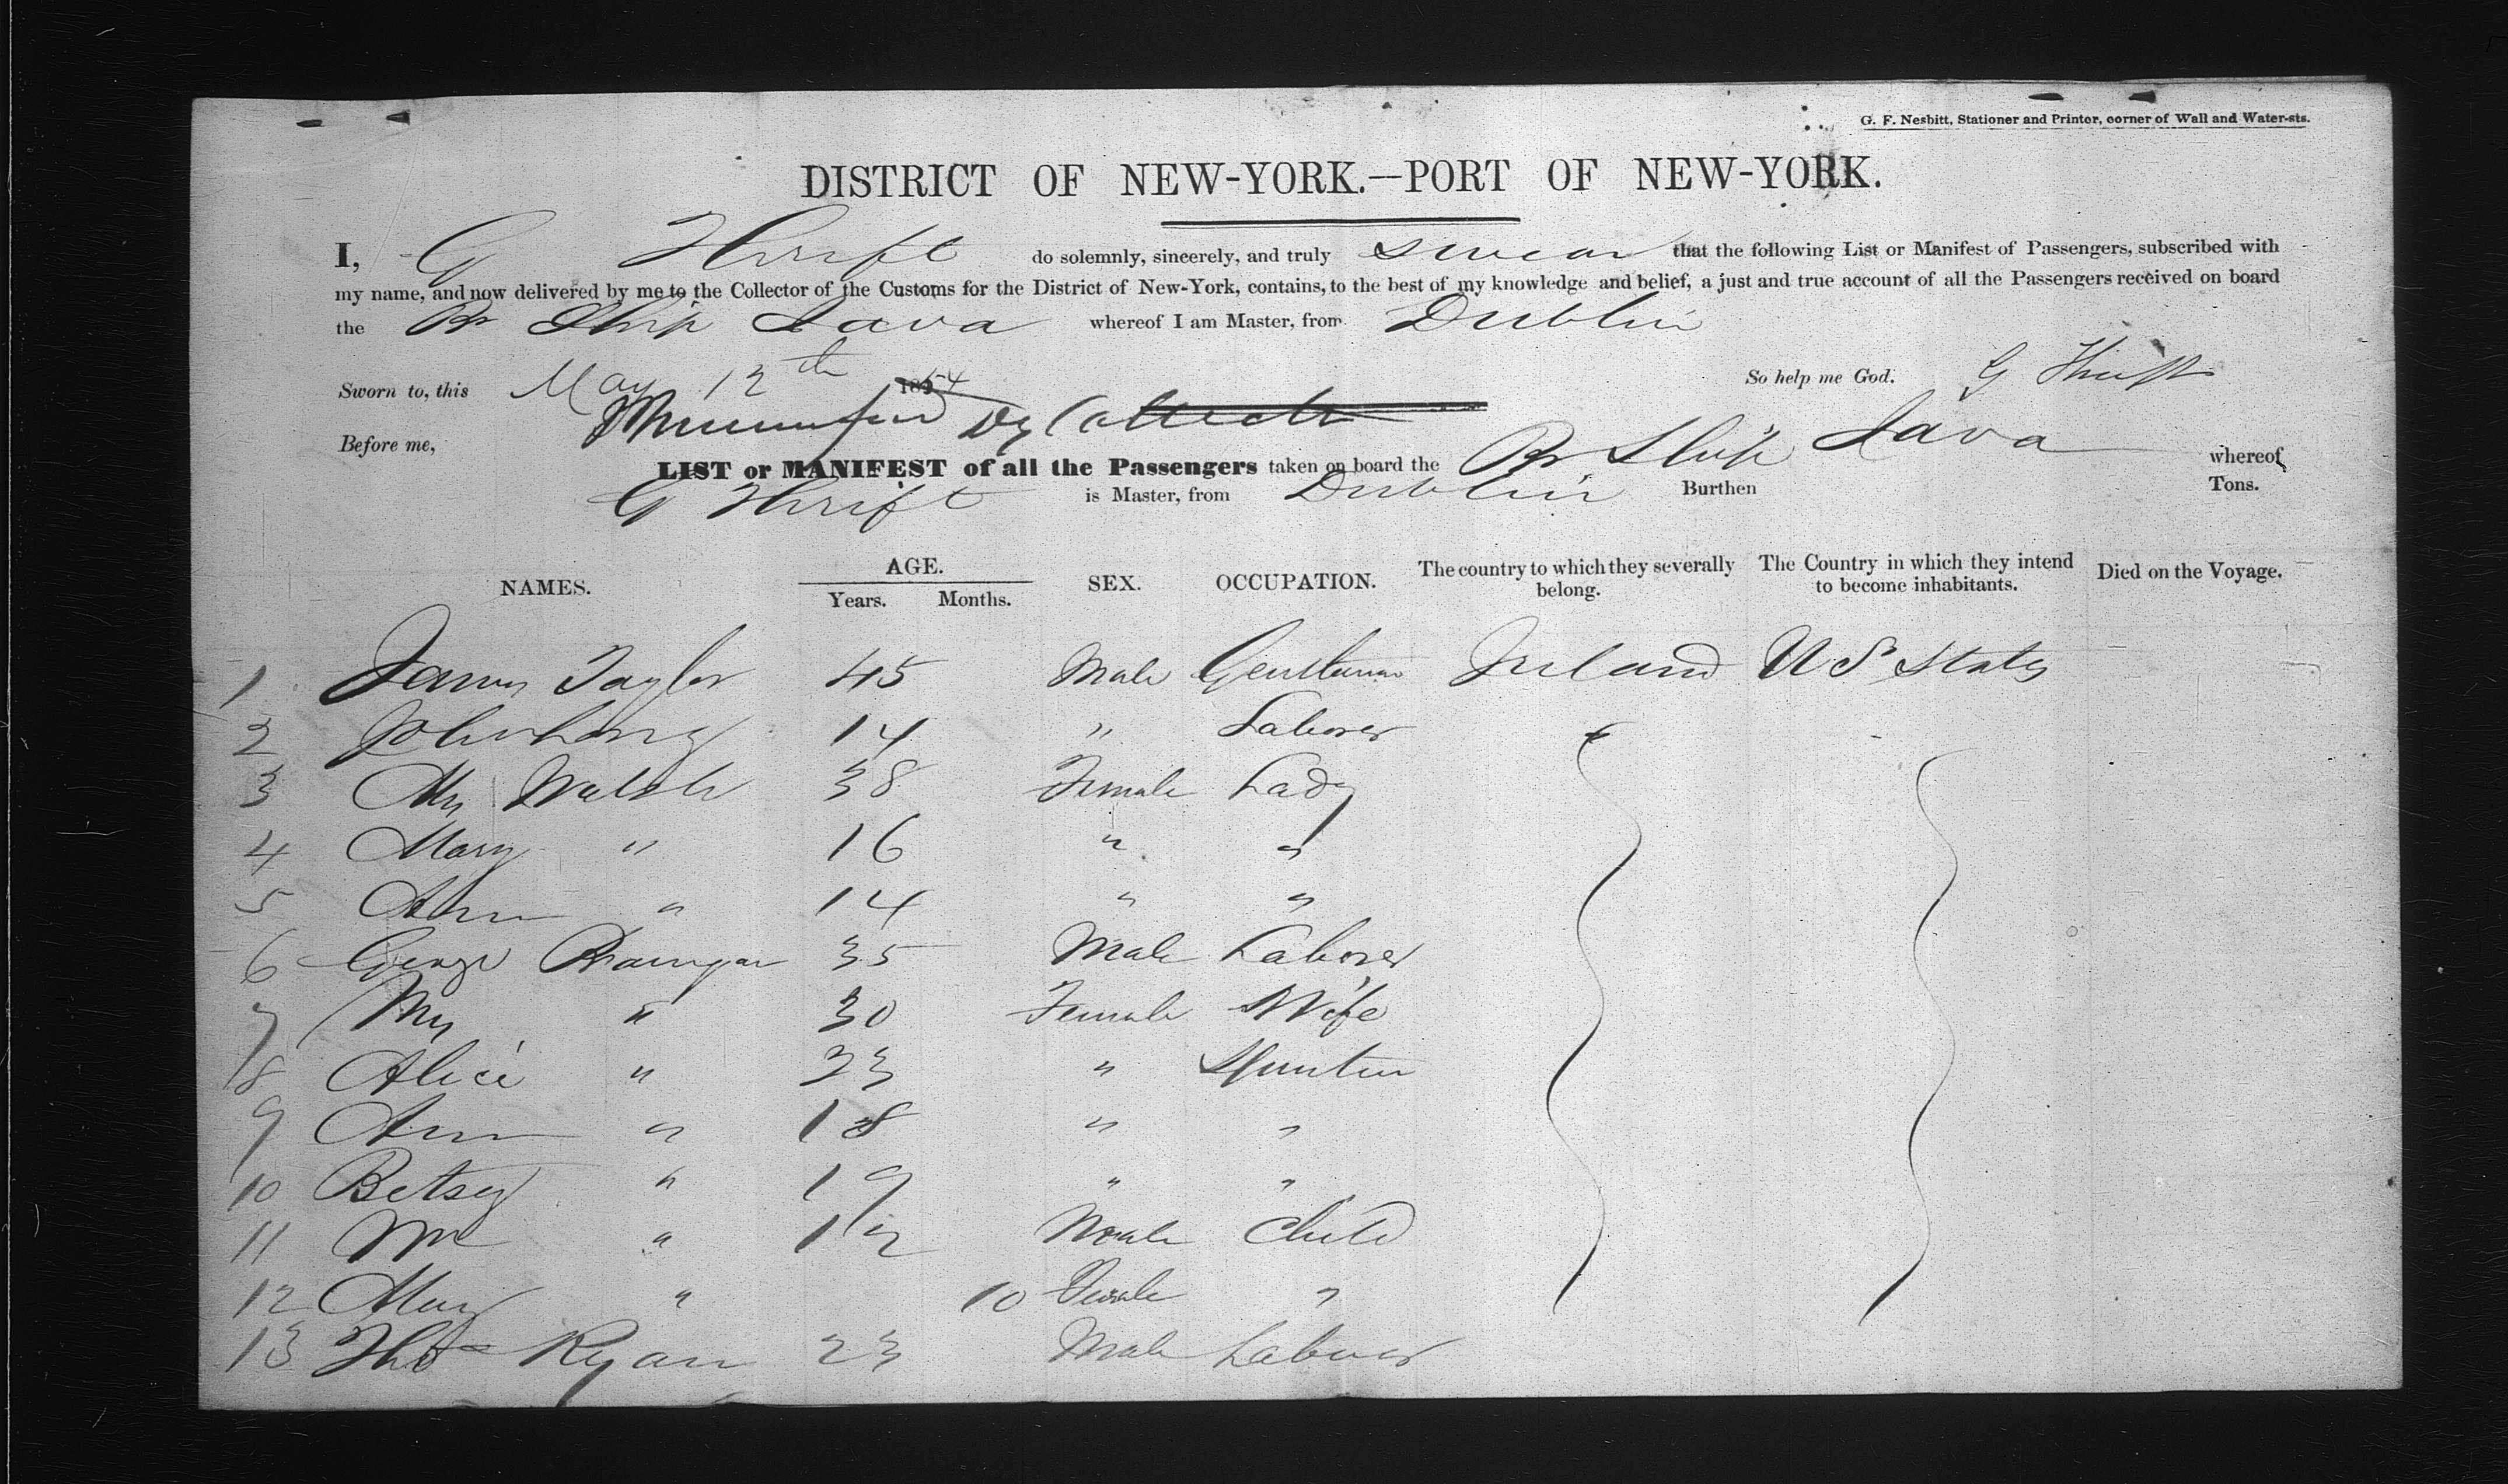 G. F. Nesbitt, Stationer and Printer, corner of Wall and Water-sts.
DISTRICT OF NEW-YORK.—PORT OF NEW-YORK.
I, G Thrift do solemnly, sincerely, and truly swear that the following List or Manifest of Passengers, subscribed with
my name, and now delivered by me to the Collector of the Customs for the District of New-York, contains, to the best of my knowledge and belief, a just and true account of all the Passengers received on board
the Br Ship Java whereof I am Master, from Dublin
Sworn to, this May 12th 1854 So help me God. G Thrift
Before me, Dy Collector
LIST or MANIFEST of all the Passengers taken on board the Br Ship Java whereof
G Thrift is Master, from Dublin Burthen Tons.
NAMES. AGE. Years. Months. SEX. OCCUPATION. The country to which they severally belong. The Country in which they intend to become inhabitants. Died on the Voyage.
1 James Taylor 45 Male Gentleman Ireland U S States
2 John 14 " Laborer
3 Mrs Walsh 38 Female Lady
4 Mary " 16 " "
5 Ann " 14 " "
6 George 35 Male Laborer
7 Mrs " 30 Female Wife
8 Alice " 23 " Spinster
9 Ann " 18 " "
10 Betsey " 19 " "
11 Wm " 1½ Male Child
12 Mary " 10 Female "
13 Thos Ryan 23 Male Laborer